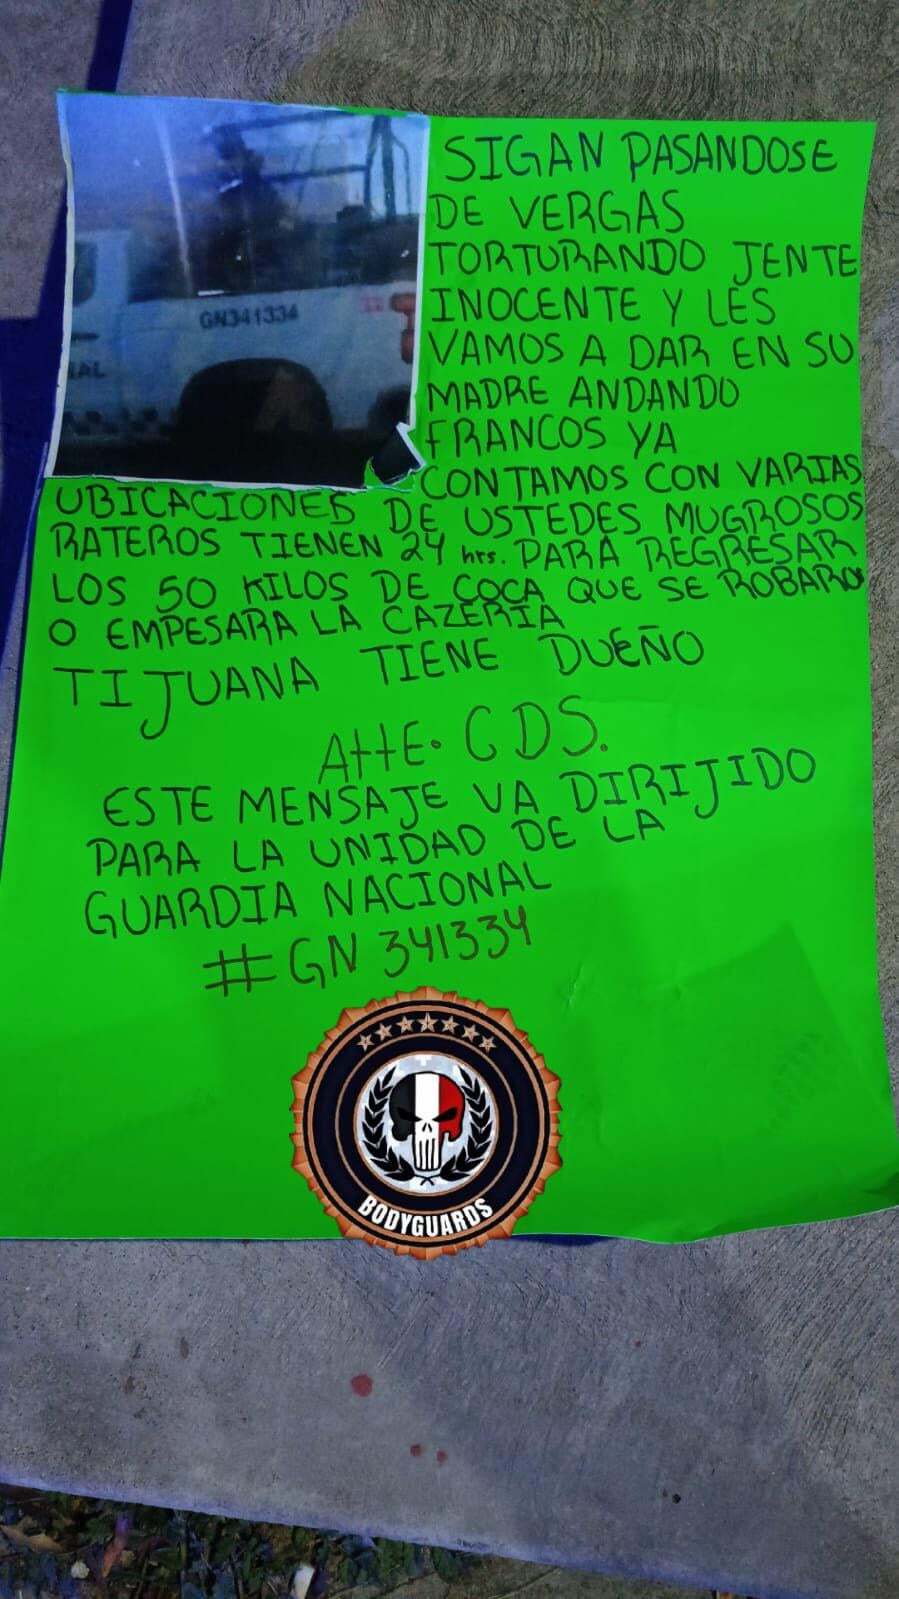 SIGAN PASANDOSE
DE VERGAS
TORTURANDO JENTE
INOCENTE Y LES
VAMOS A DAR EN SU
MADRE ANDANDO
FRANCOS YA
CONTAMOS CON VARIAS
UBICACIONES DE USTEDES MUGROSOS
RATEROS TIENEN 24 hrs. PARA REGRESAR
LOS 50 KILOS DE COCA QUE SE ROBARON
O EMPESARA LA CAZERIA
TIJUANA TIENE DUEÑO
AttE. CDS.
ESTE MENSAJE VA DIRIJIDO
PARA LA UNIDAD DE LA
GUARDIA NACIONAL
#GN 341334
GN341334
AL
BODYGUARDS